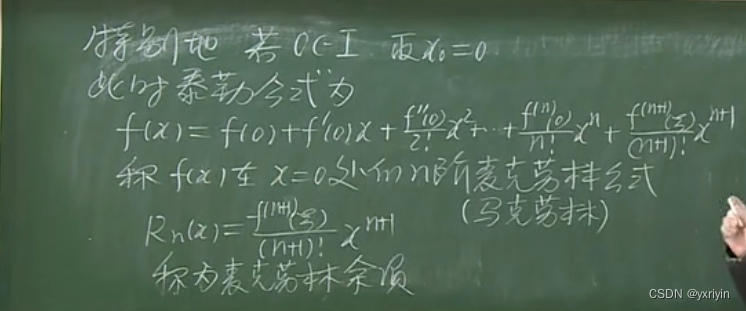 特别地 若 0∈I 取x₀=0
此时泰勒公式为
f(x)=f(0)+f'(0)x+\frac{f''(0)}{2!}x²+…+\frac{f^{(n)}(0)}{n!}x^n+\frac{f^{(n+1)}(ξ)}{(n+1)!}x^{n+1}
称f(x)在x=0处的n阶麦克劳林公式
(马克劳林)
Rn(x)=\frac{f^{(n+1)}(ξ)}{(n+1)!}x^{n+1}
称为麦克劳林余项
CSDN @yxriyin